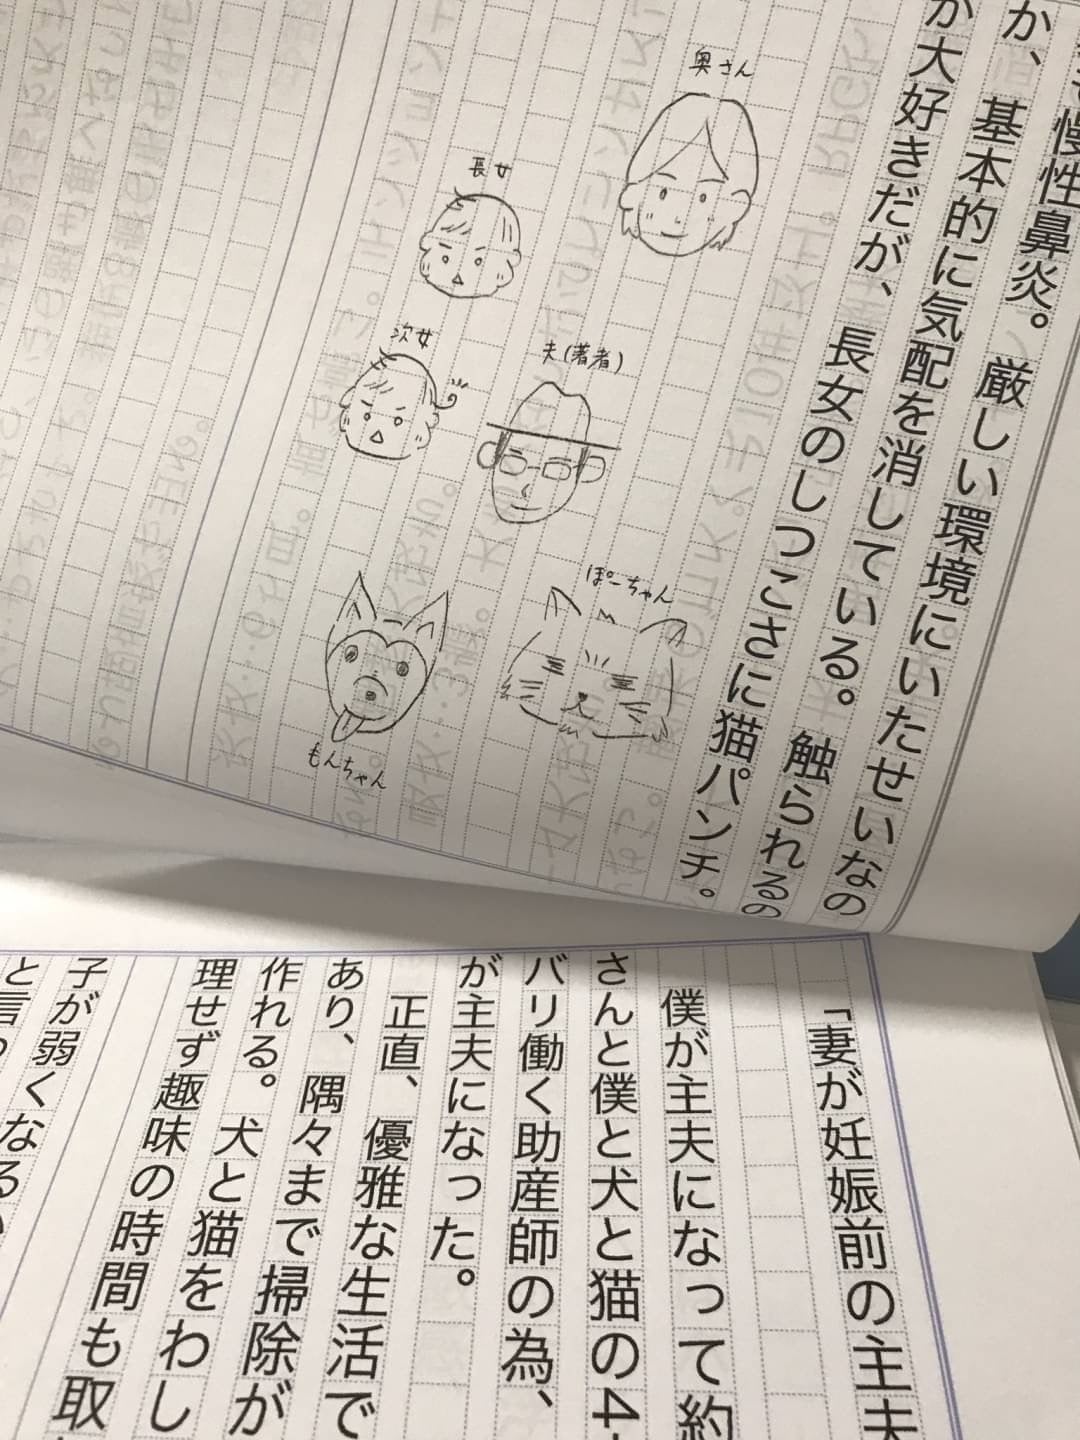 慢性鼻炎。厳しい環境にいたせいなの
か、基本的に気配を消している。触られるの
が大好きだが、長女のしつこさに猫パンチ。
奥さん
長女
次女
夫(著者)
ぽーちゃん
もんちゃん
「妻が妊娠前の主夫
僕が主夫になって約
さんと僕と犬と猫の4
バリ働く助産師の為、
が主夫になった。
正直、優雅な生活で
あり、隅々まで掃除が
作れる。犬と猫をわし
理せず趣味の時間も取
子が弱くなる
と言っ